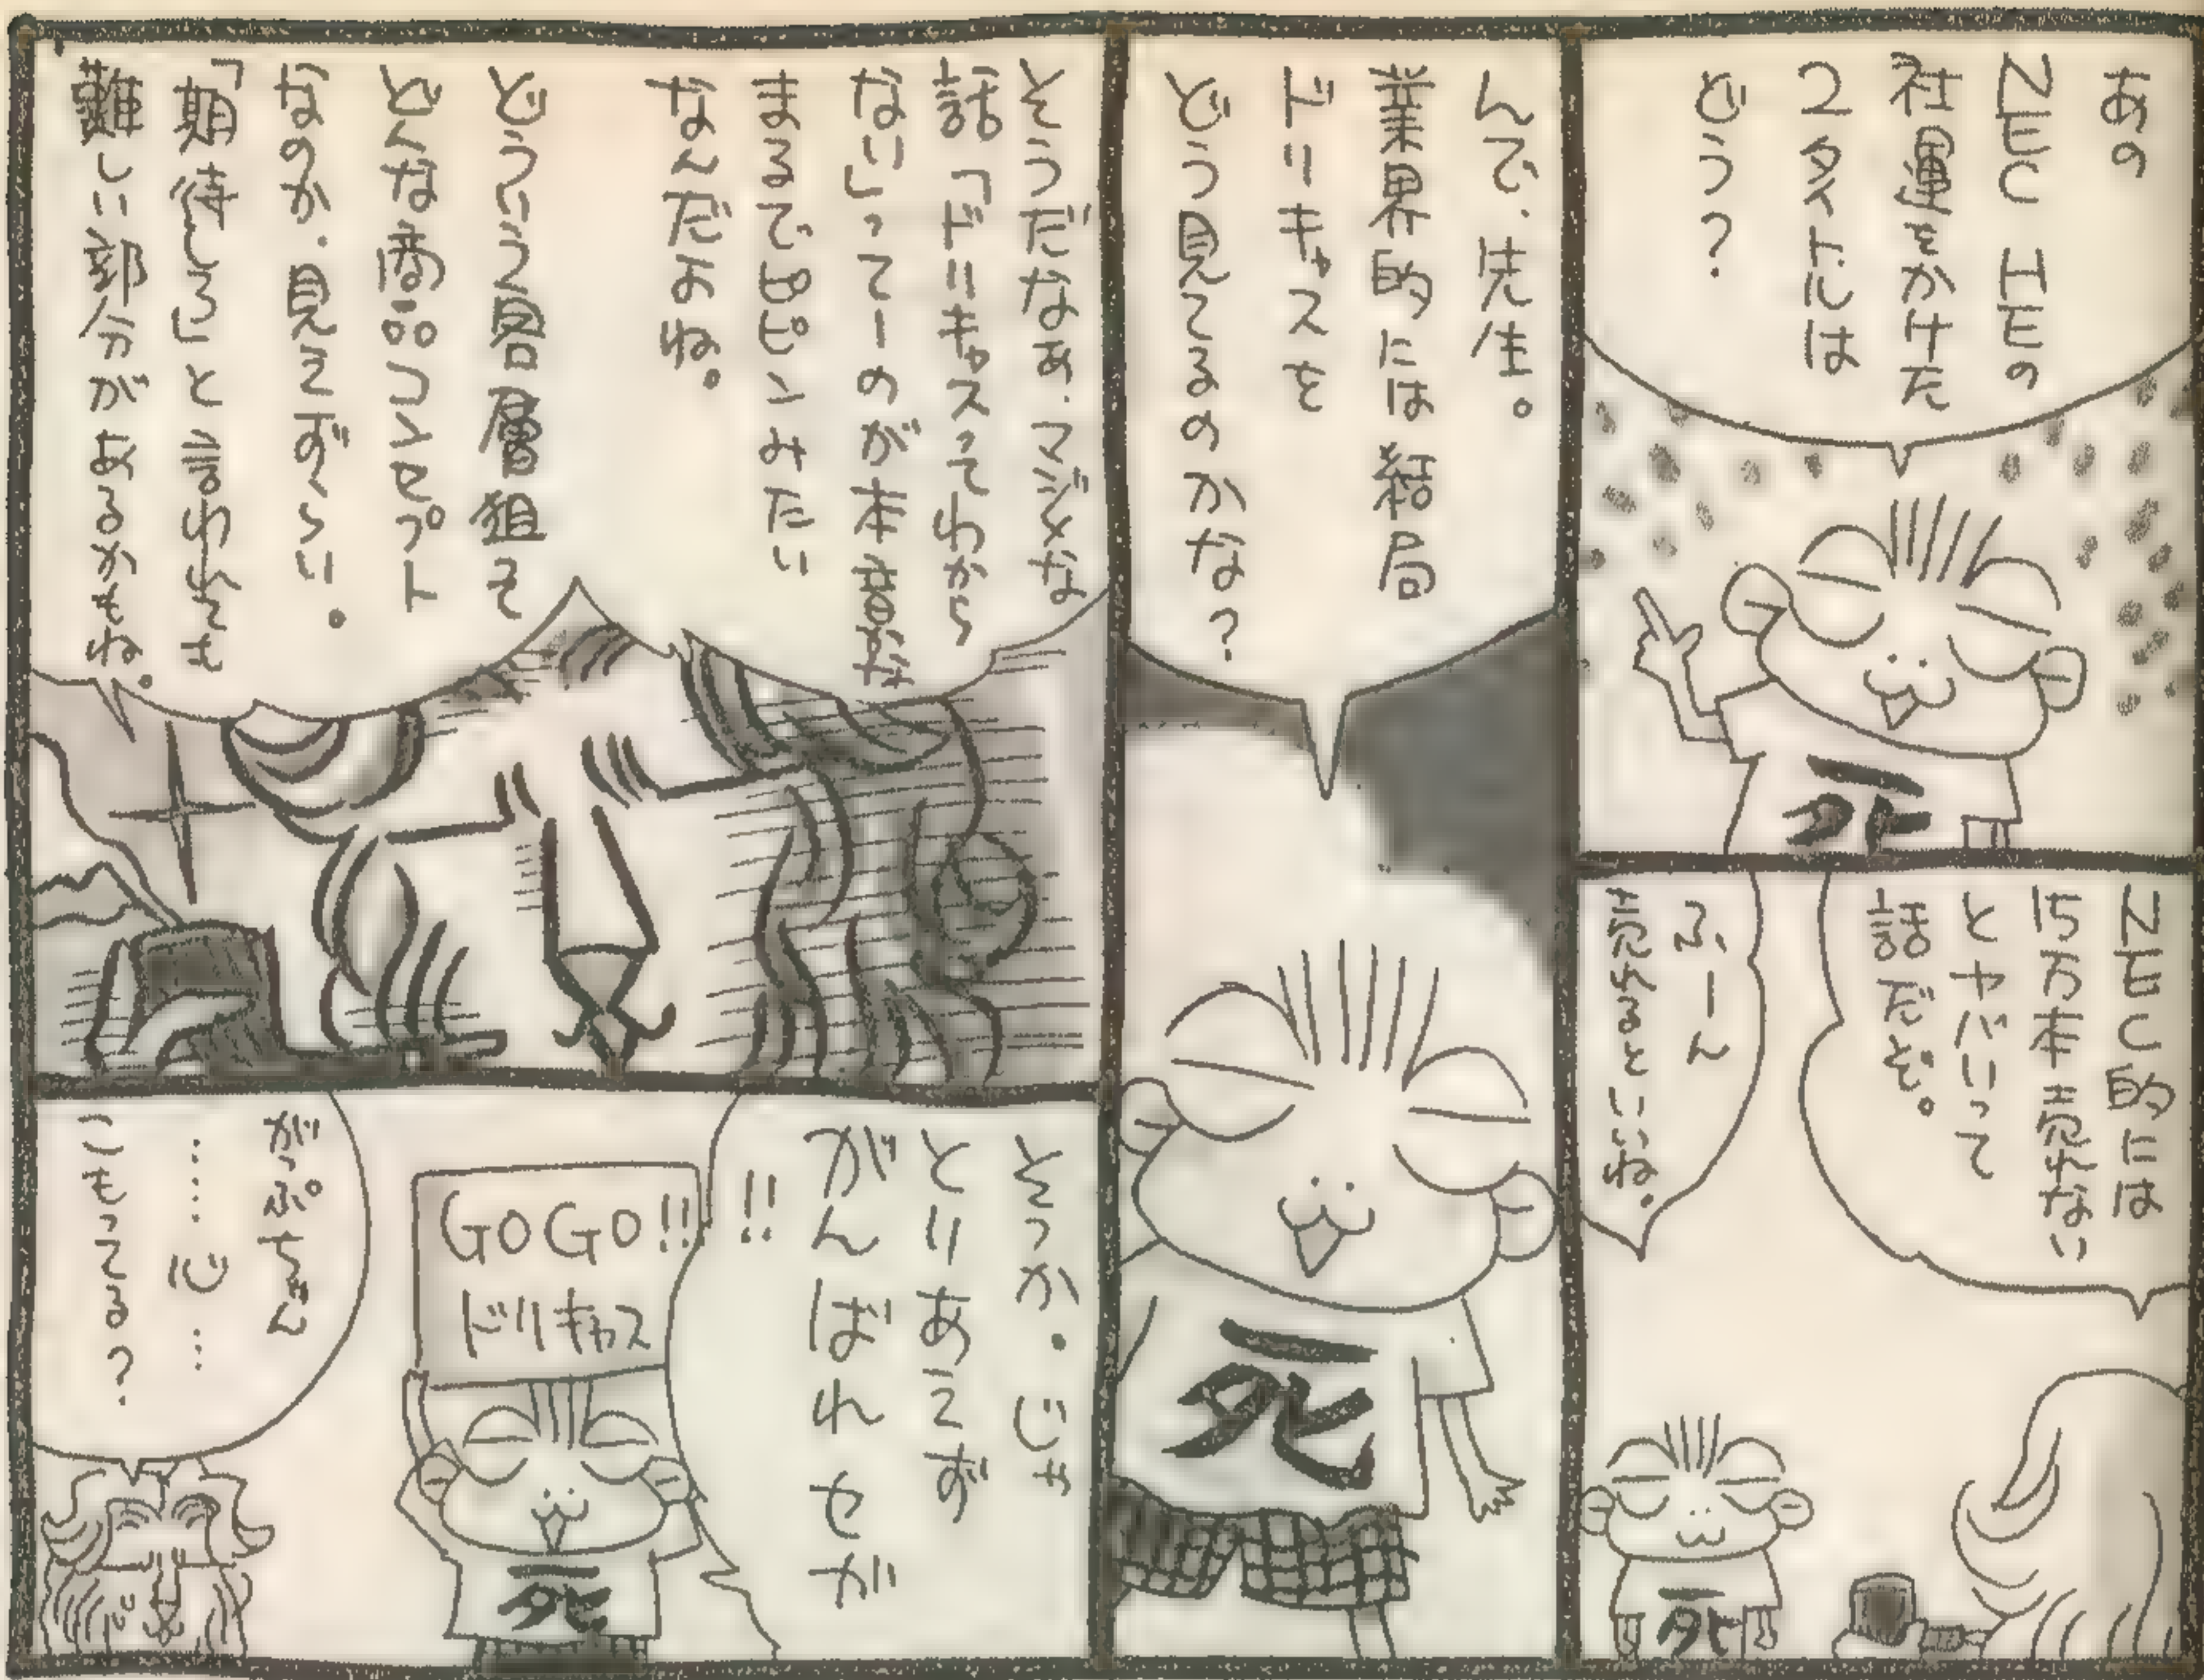 あの
NEC HEの
社運をかけた
2タイトルは
どう?
死
NEC的には
15万本売れない
とヤバいって
話だぞ。
ふーん
売れるといいね。
死
んで、先生。
業界的には結局
ドリキャスを
どう見てるのかな?
死
そうだなぁ、マジメな
話「ドリキャスってわから
ない」ってーのが本音かな
まるでPピンみたい
なんだよね。
どういう層狙って
どんな商品コンセプト
なのか、見えずらい。
「期待しろ」と言われても
難しい部分があるかもね。
そっか。じゃ
とりあえず
がんばれセガ
!!
GOGO!!
ドリキャス
死
がっぷちょん
‥‥‥じ‥